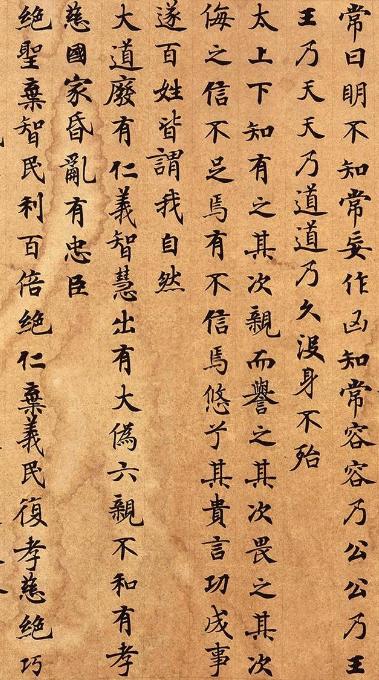 常曰明不知常妄作凶知常容容乃公公乃王
王乃天天乃道道乃久沒身不殆
太上下知有之其次親而譽之其次畏之其次
侮之信不足焉有不信焉悠兮其貴言功成事
遂百姓皆謂我自然
大道廢有仁義智慧出有大偽六親不和有孝
慈國家昏亂有忠臣
絕聖棄智民利百倍絕仁棄義民復孝慈絕巧